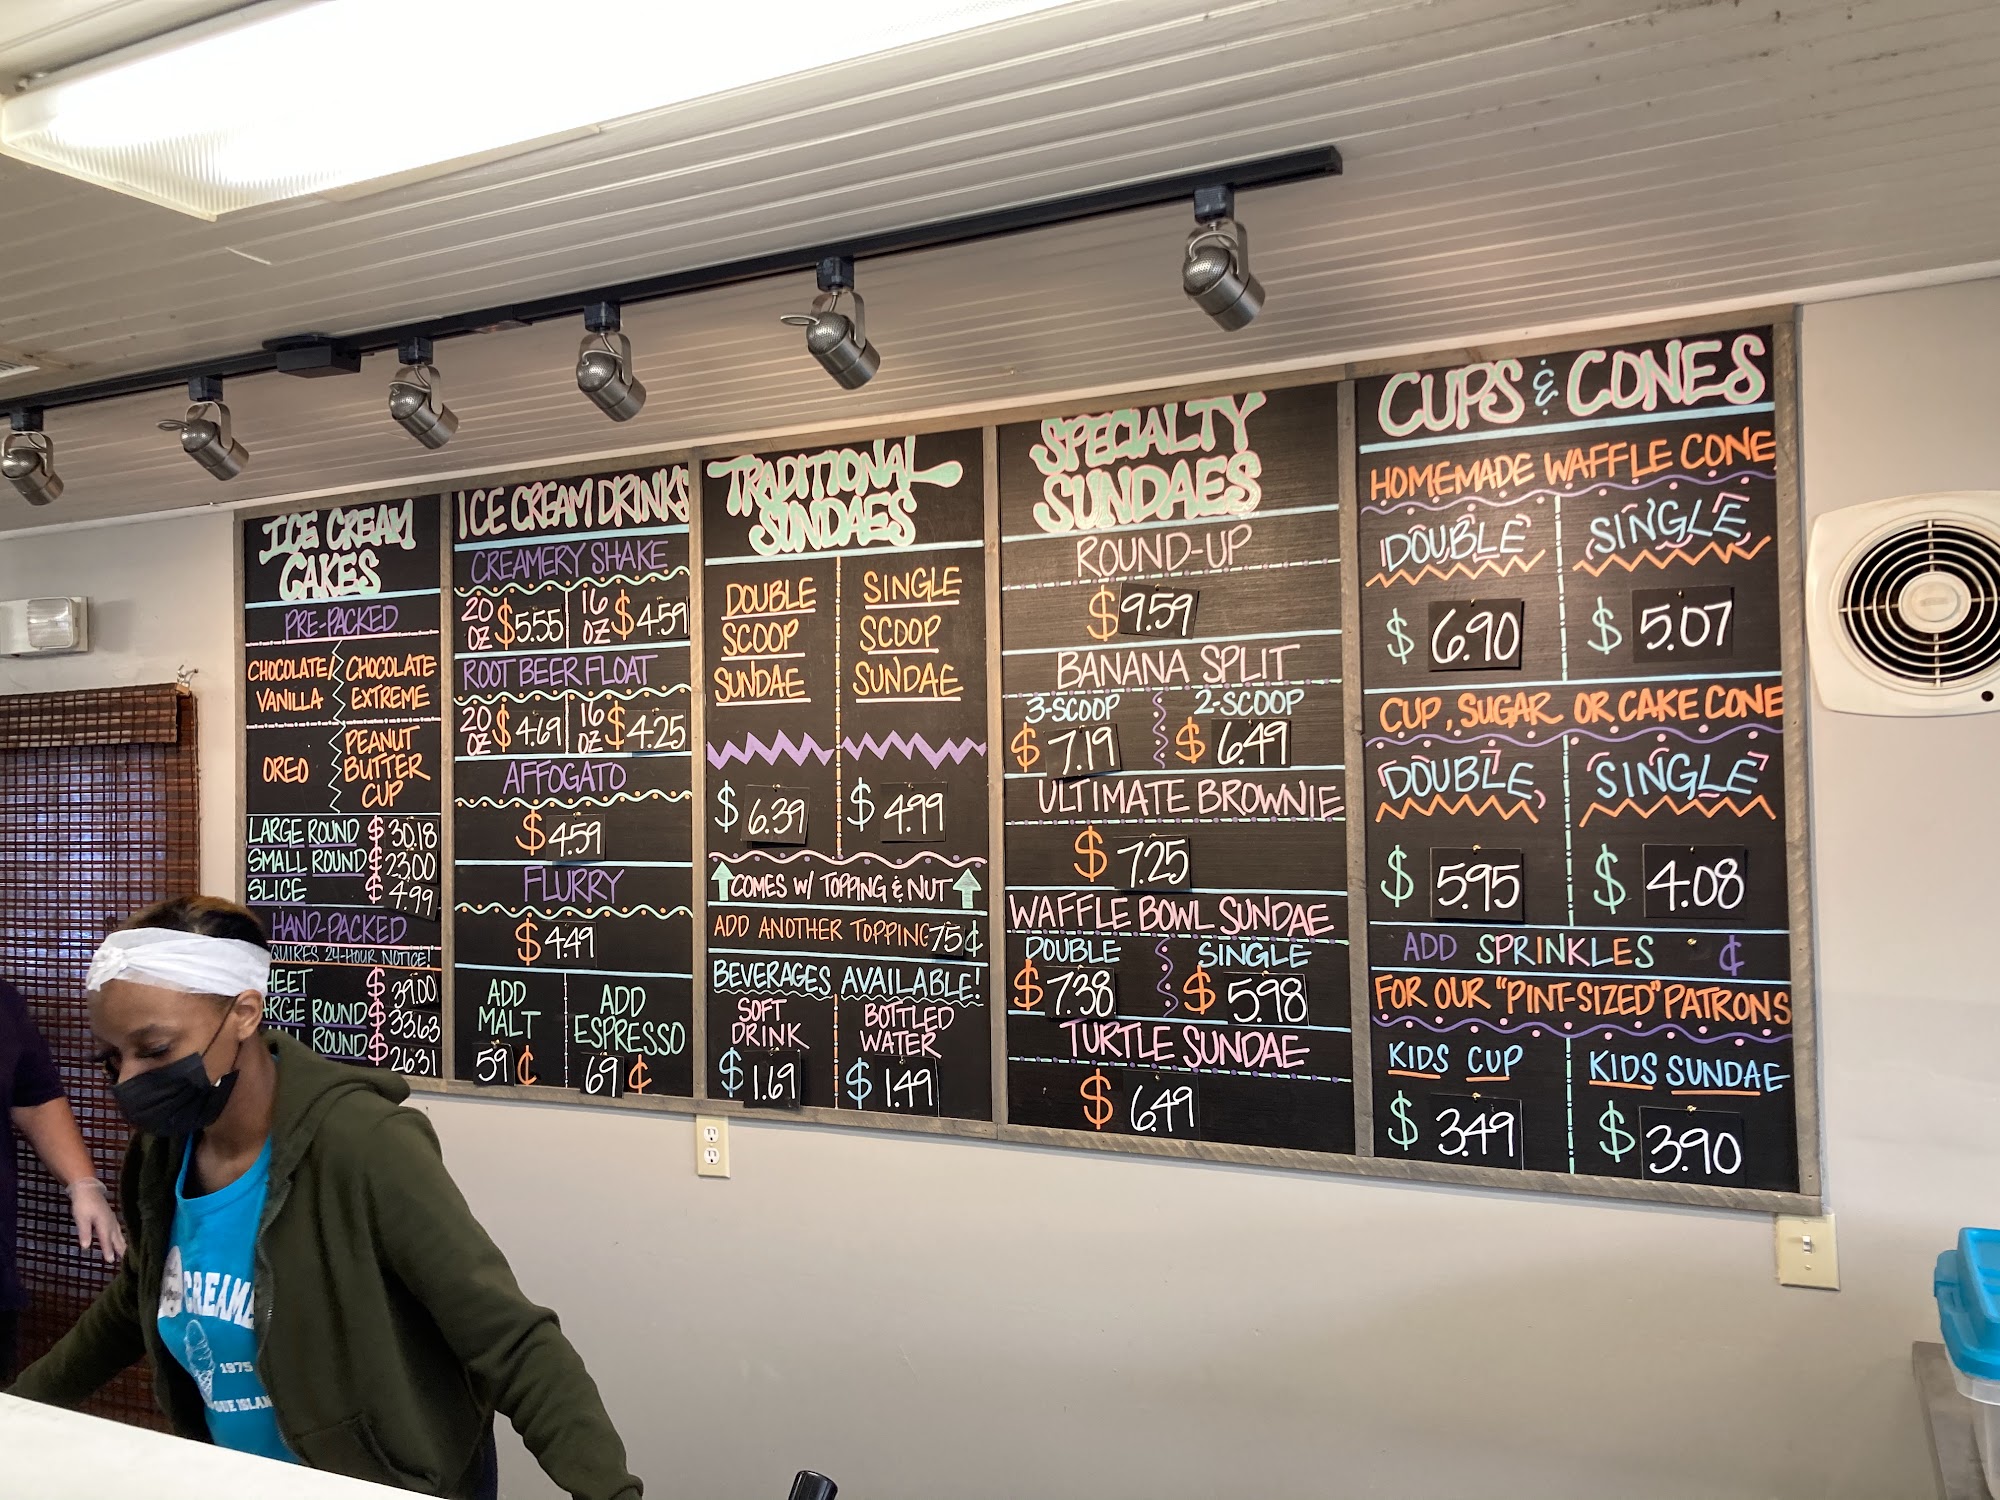 ICE CREAM
CAKES
PRE-PACKED
CHOCOLATE/
VANILLA
CHOCOLATE
EXTREME
OREO
PEANUT
BUTTER
CUP
LARGE ROUND $ 30.18
SMALL ROUND $ 23.00
SLICE $ 4.99
HAND-PACKED
QUIRES 24-HOUR NOTICE!
HEET $ 39.00
ARGE ROUND $ 33.63
ROUND $ 26.31
ICE CREAM DRINKS
CREAMERY SHAKE
20 OZ $ 5.55 16 OZ $ 4.59
ROOT BEER FLOAT
20 OZ $ 4.69 16 OZ $ 4.25
AFFOGATO
$ 4.59
FLURRY
$ 4.49
ADD
MALT
59 ¢
ADD
ESPRESSO
69 ¢
TRADITIONAL
SUNDAES
DOUBLE
SCOOP
SUNDAE
$ 6.39
SINGLE
SCOOP
SUNDAE
$ 4.99
COMES W/ TOPPING & NUT
ADD ANOTHER TOPPING 75 ¢
BEVERAGES AVAILABLE!
SOFT
DRINK
$ 1.69
BOTTLED
WATER
$ 1.49
SPECIALTY
SUNDAES
ROUND-UP
$ 9.59
BANANA SPLIT
3-SCOOP 2-SCOOP
$ 7.19 $ 6.49
ULTIMATE BROWNIE
$ 7.25
WAFFLE BOWL SUNDAE
DOUBLE SINGLE
$ 7.38 $ 5.98
TURTLE SUNDAE
$ 6.49
CUPS & CONES
HOMEMADE WAFFLE CONE
DOUBLE SINGLE
$ 6.90 $ 5.07
CUP, SUGAR OR CAKE CONE
DOUBLE SINGLE
$ 5.95 $ 4.08
ADD SPRINKLES ¢
FOR OUR "PINT-SIZED" PATRONS
KIDS CUP KIDS SUNDAE
$ 3.49 $ 3.90
CREAM
1975